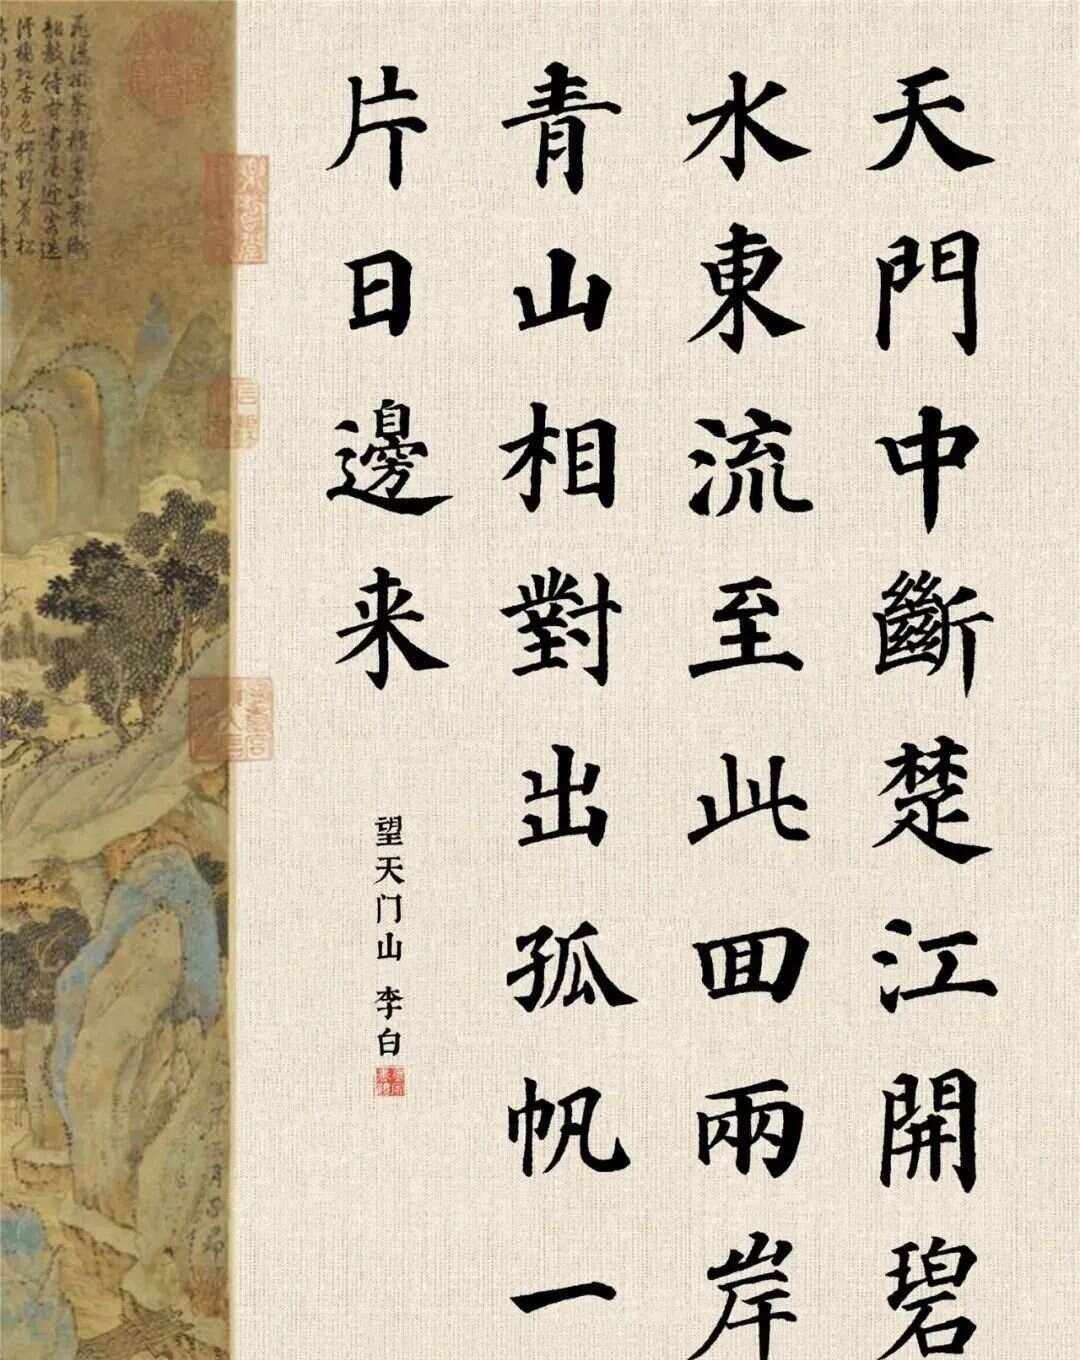 天門中斷楚江開碧
水東流至此回兩岸
青山相對出孤帆一
片日邊来
望天门山 李白